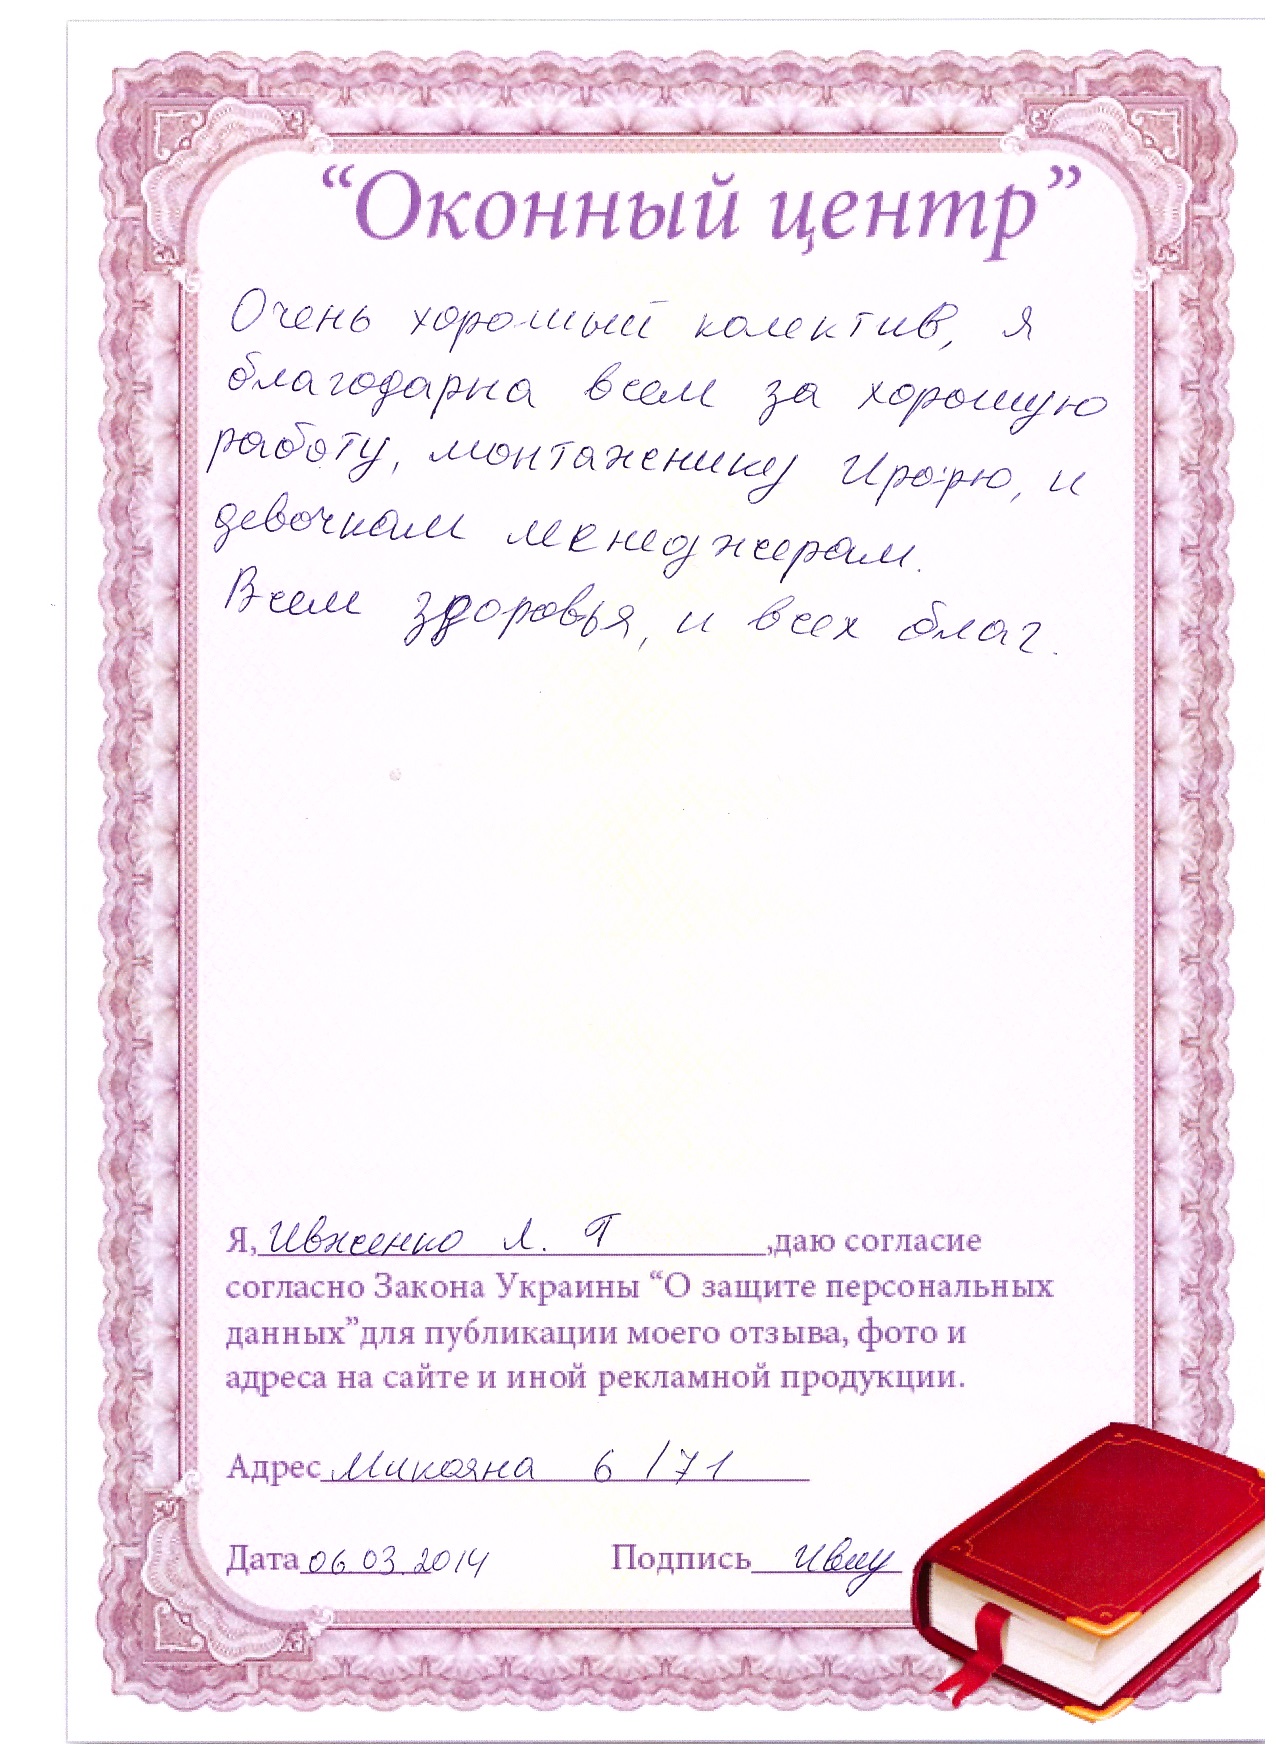 “Оконный центр”
Очень хороший колектив, я
благодарна всем за хорошую
работу, монтаженику и
девочкам менеджерам.
Всем здоровья, и всех благ.
Я, Ивженко Л. Г ,даю согласие
согласно Закона Украины “О защите персональных
данных”для публикации моего отзыва, фото и
адреса на сайте и иной рекламной продукции.
Адрес Микояна 6 /71
Дата 06.03.2014 Подпись